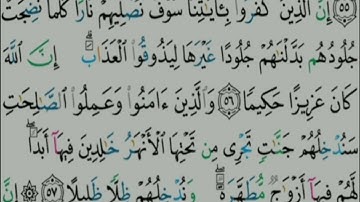 ٥٥ إِنَّ ٱلَّذِينَ كَفَرُوا۟ بِـَٔايَٰتِنَا سَوْفَ نُصْلِيهِمْ نَارًا كُلَّمَا نَضِجَتْ
جُلُودُهُم بَدَّلْنَٰهُمْ جُلُودًا غَيْرَهَا لِيَذُوقُوا۟ ٱلْعَذَابَ ۗ إِنَّ ٱللَّهَ
كَانَ عَزِيزًا حَكِيمًا ٥٦ وَٱلَّذِينَ ءَامَنُوا۟ وَعَمِلُوا۟ ٱلصَّٰلِحَٰتِ
سَنُدْخِلُهُمْ جَنَّٰتٍ تَجْرِى مِن تَحْتِهَا ٱلْأَنْهَٰرُ خَٰلِدِينَ فِيهَآ أَبَدًا ۖ
لَّهُمْ فِيهَآ أَزْوَٰجٌ مُّطَهَّرَةٌ ۖ وَنُدْخِلُهُمْ ظِلًّا ظَلِيلًا ٥٧ ۞ إِنَّ